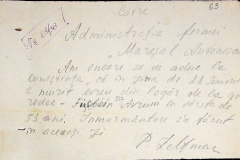 63
Către
Administrația fermei
Mareșal Antonescu
Am onoare se va aduce la
cunoștință, că în ziua de 22 Ianuarie
a murit evreu din lagăr de la
Avram în vârstă de
53 ani. Înmormântare s'a făcut
în aceeași zi
P. Zelfman